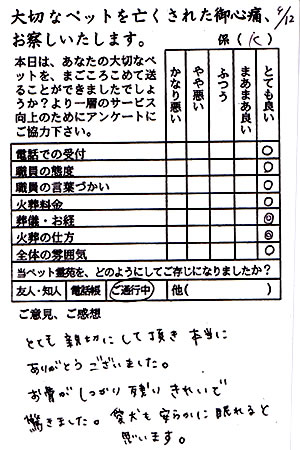 大切なペットを亡くされた御心痛、
お察しいたします。
9/12
係(K)
本日は、あなたの大切なペ
ットを、まごころこめて送
ることができましたでしょ
うか?より一層のサービス
向上のためにアンケートに
ご協力下さい。
かなり悪い
やや悪い
ふつう
まあまあ良い
とても良い
電話での受付 ○
職員の態度 ○
職員の言葉づかい ○
火葬料金 ○
葬儀・お経 ◎
火葬の仕方 ◎
全体の雰囲気 ○
当ペット霊苑を、どのようにしてご存じになりましたか?
友人・知人 電話帳 ご通行中 他( )
ご意見、ご感想
とても 親切にして頂き 本当に
ありがとうございました。
お骨が しっかり 残り きれいで
驚きました。愛犬も 安らかに 眠れると
思います。